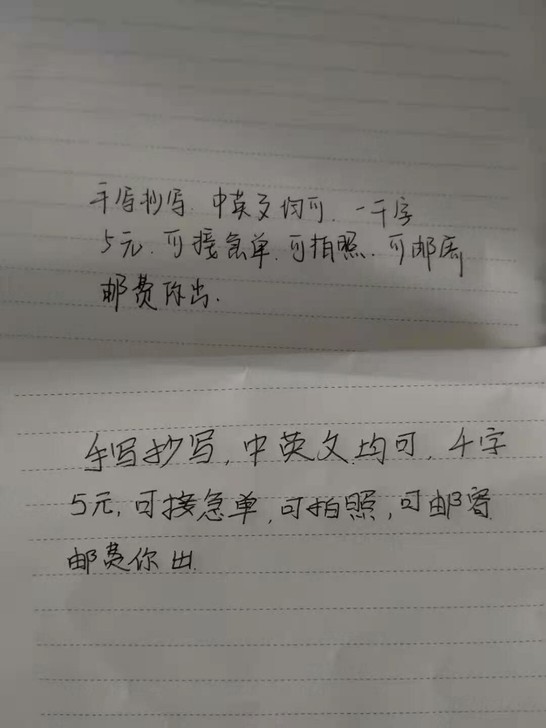 手写抄写.中英文均可.一千字
5元.可接急单.可拍照.可邮寄
邮费你出.
手写抄写,中英文.均可,千字
5元,可接急单,可拍照,可邮寄
邮费你出.